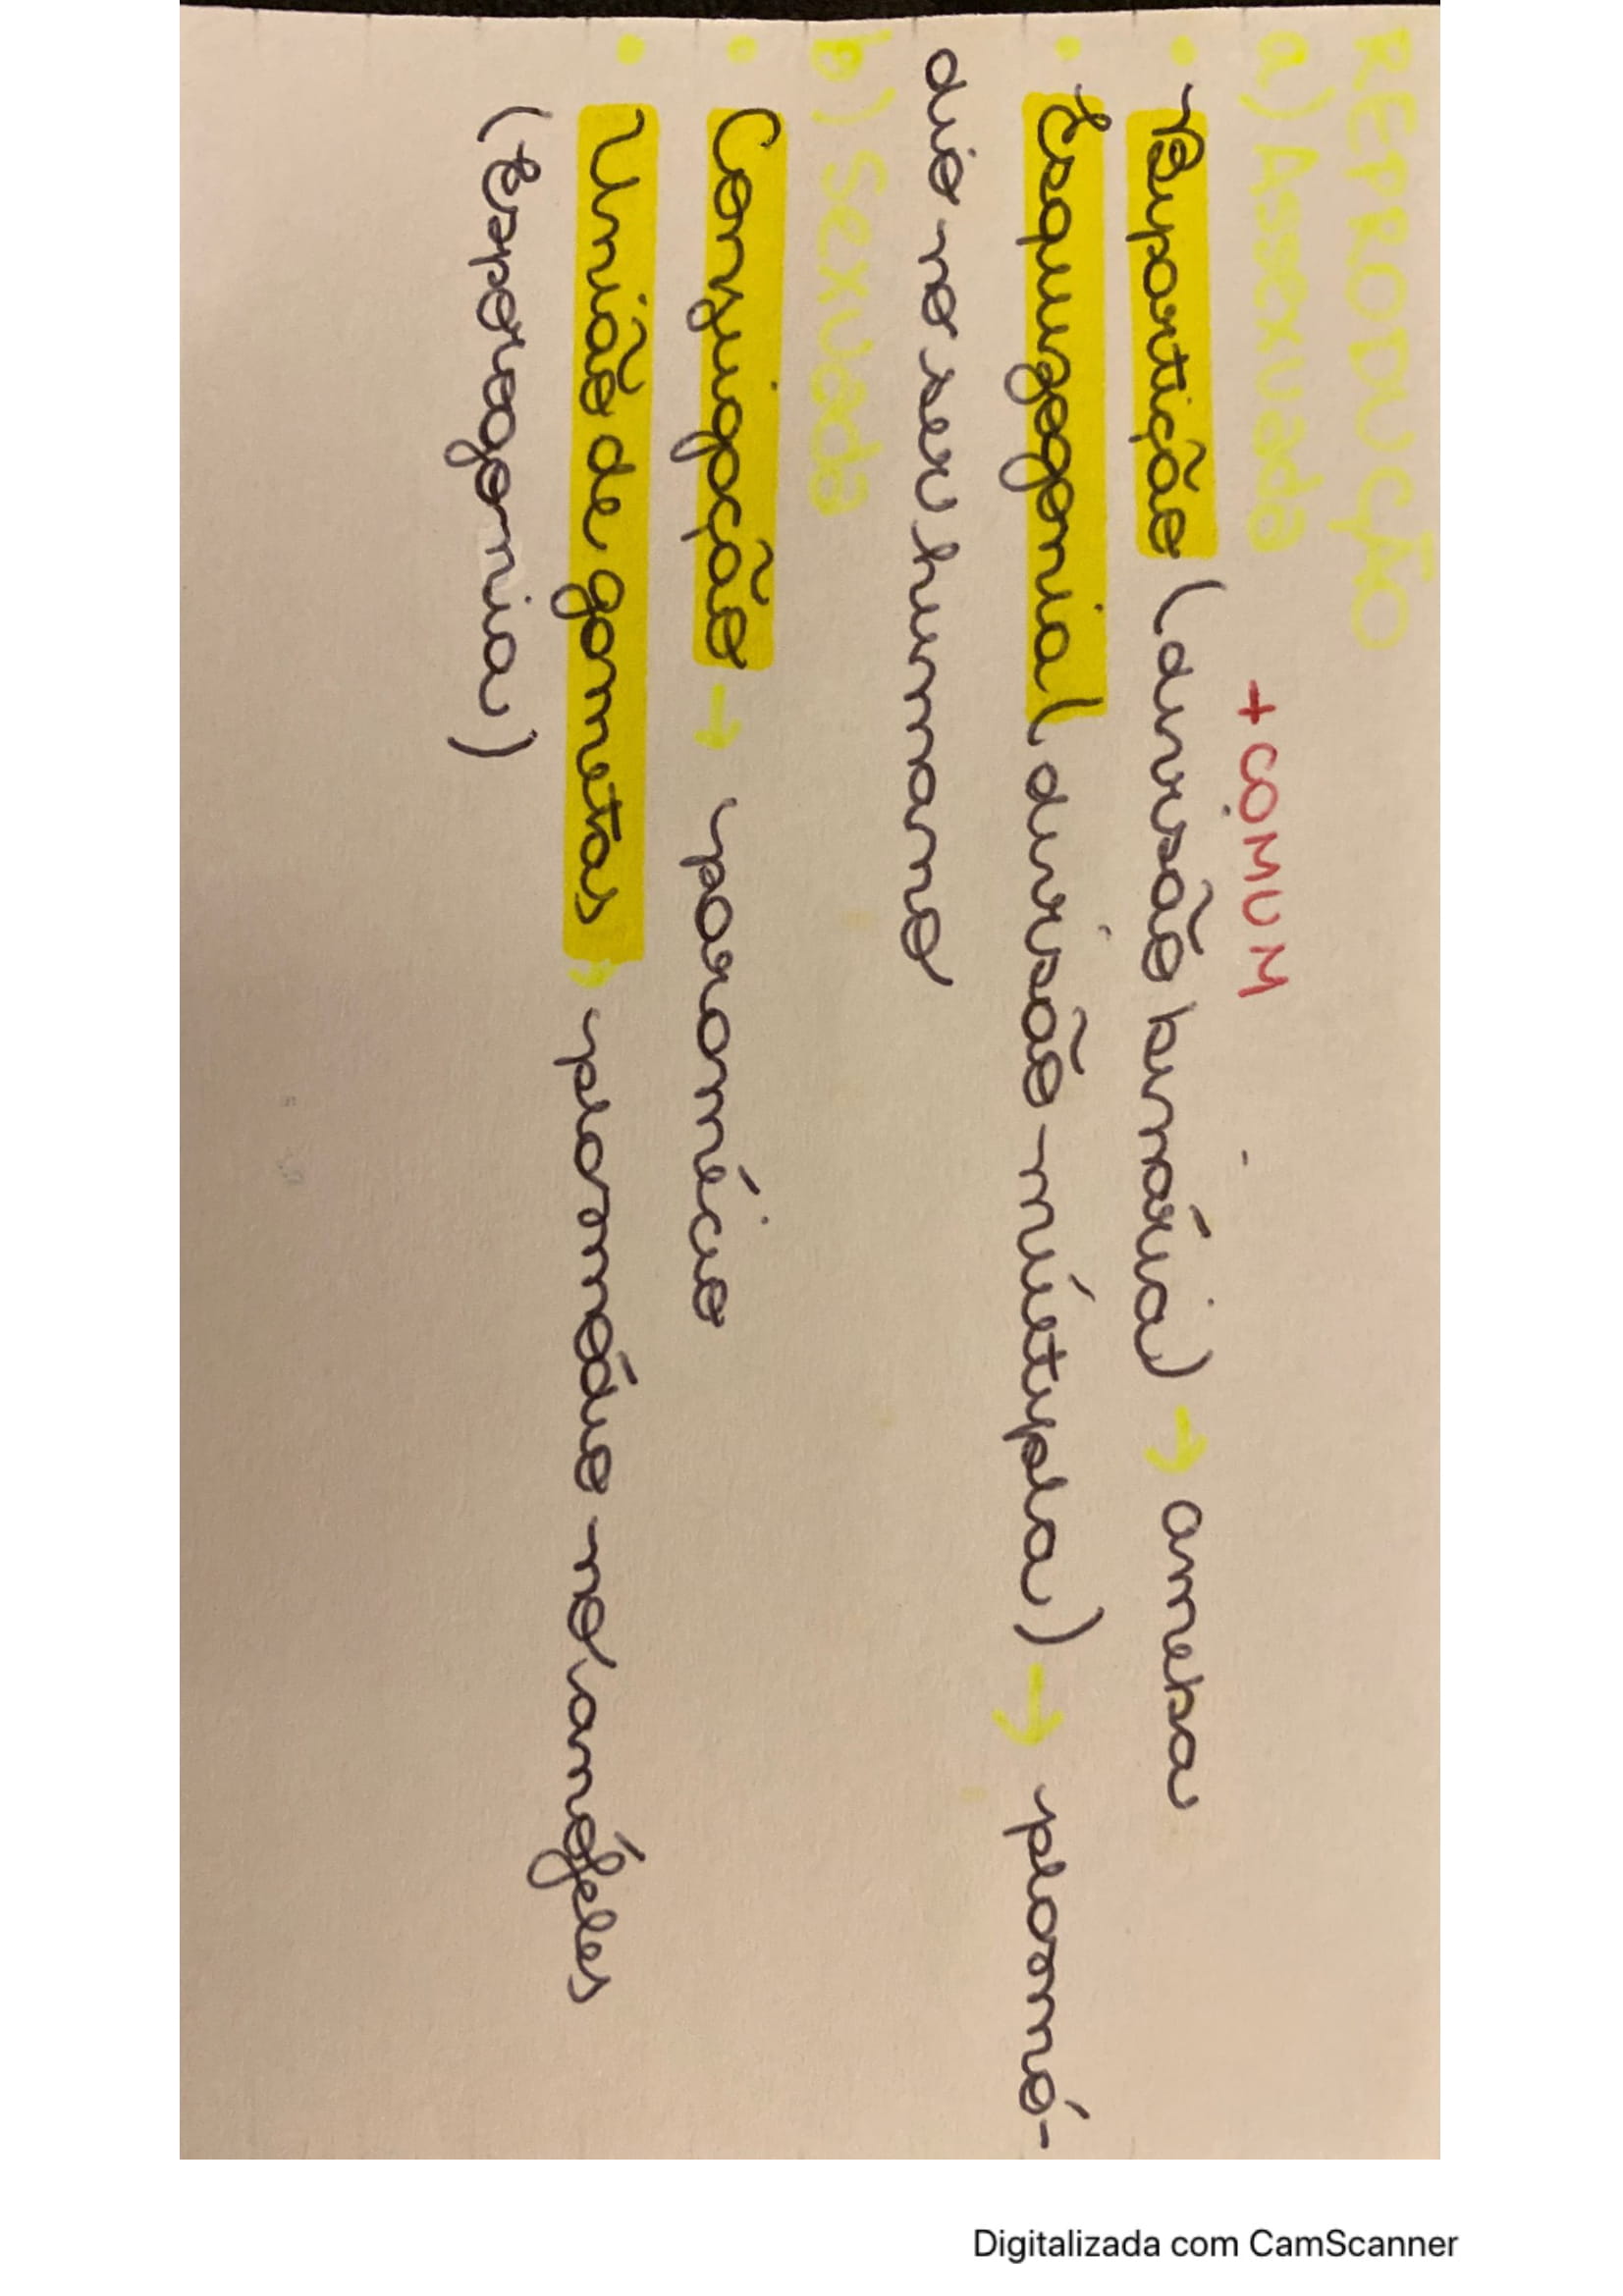 REPRODUÇÃO
a) Assexuada + COMUM
• Bipartição (divisão binária) → ameba
• Esquizogonia (divisão múltipla) → plasmó-
dio no ser humano
b) Sexuada
• Conjugação → paramécio
• União de gametas → plasmódio no anófeles
(Esporogonia)
Digitalizada com CamScanner